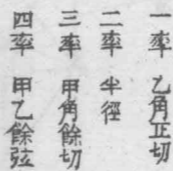 一率　乙角正切
二率　半徑
三率　甲角餘切
四率　甲乙餘弦